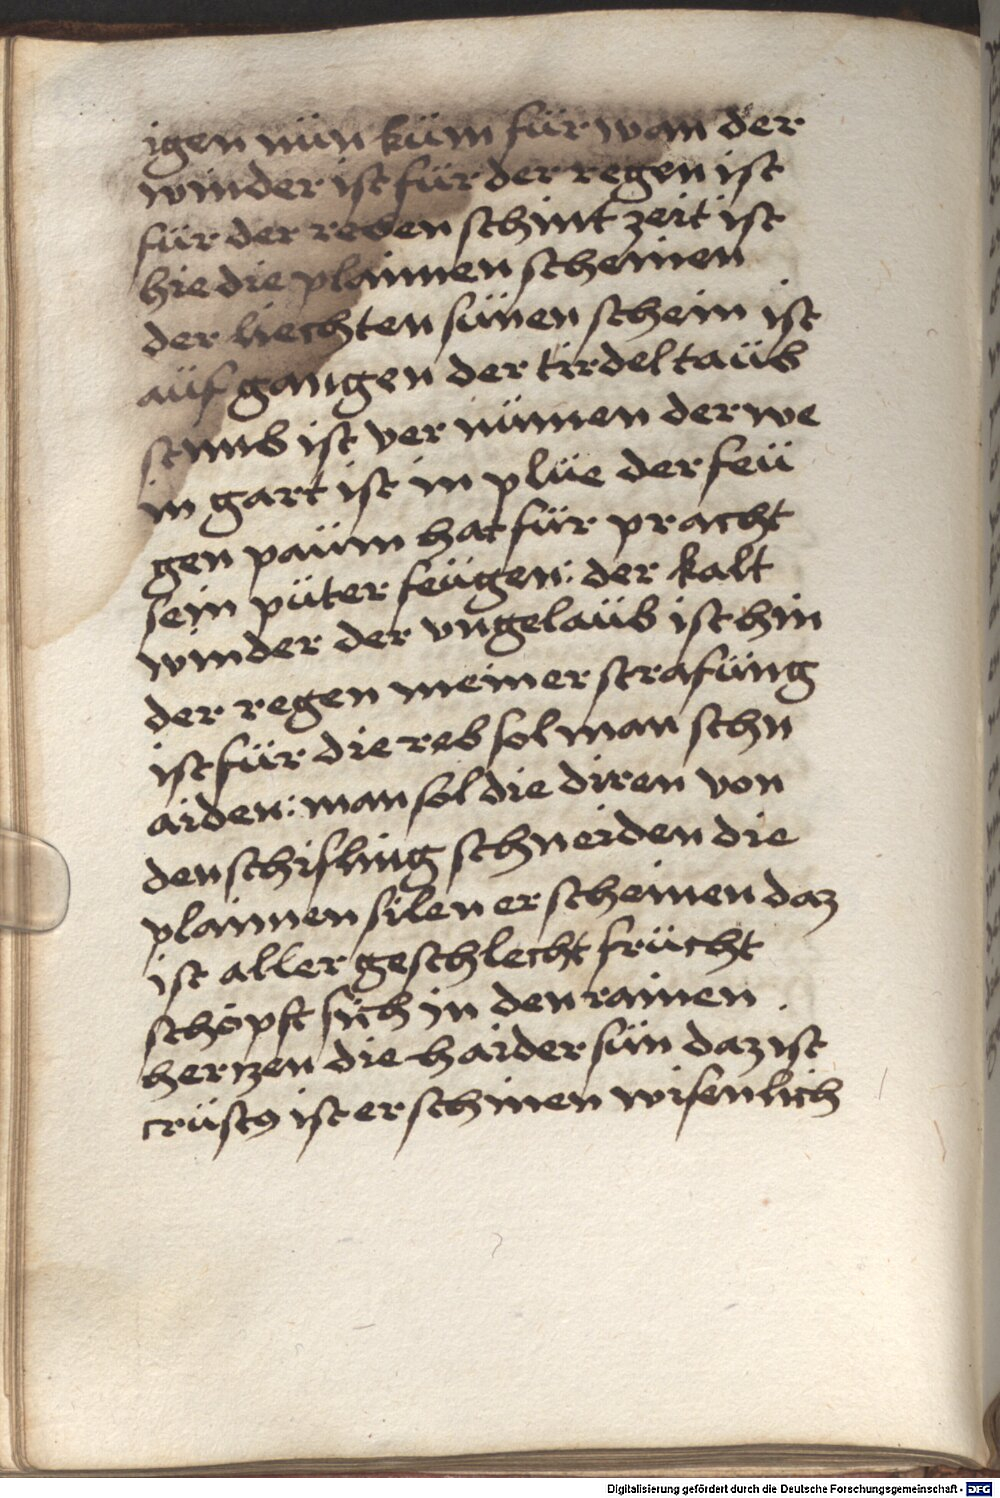 igen nün küm für wan der
winder ist für der regen ist
für der reben schnit zeit ist
hie die plaimen scheinen
der liechten sünen schein ist
aüf gangen der tirdel taüb
stimb ist ver nümen der we
in gart ist in plüe der feü
gen paüm hat für pracht
sein püter feügen: der kalt
winder der vngelaüb ist hin
der regen meiner strafüng
ist für die reb sol man schn
aiden: man sol die diren von
den schisling schneiden die
plaimen silen er scheinen daz
ist aller geschlecht frücht
schöpft sich in den rainen
herzen die haider sün daz ist
crüstꝰ ist erschinen wisenlich
Digitalisierung gefördert durch die Deutsche Forschungsgemeinschaft - DFG